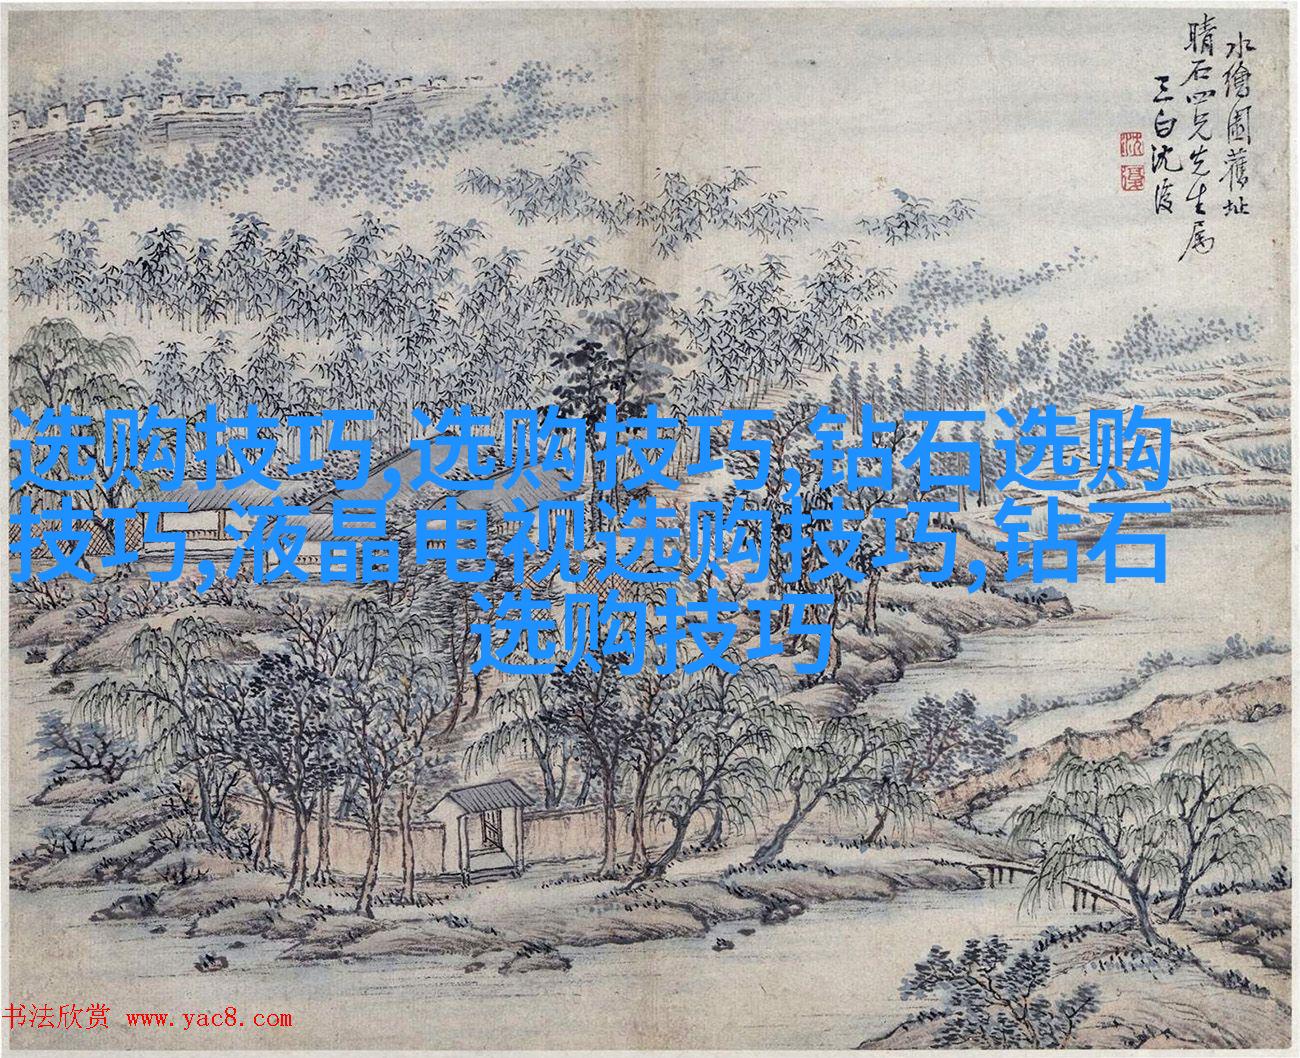 水繪園舊址
晴石四兄先生属
三白沈復
沈
復
选购技巧,选购技巧,钻石选购
技巧,液晶电视选购技巧,钻石
选购技巧
书法欣赏 www.yac8.com